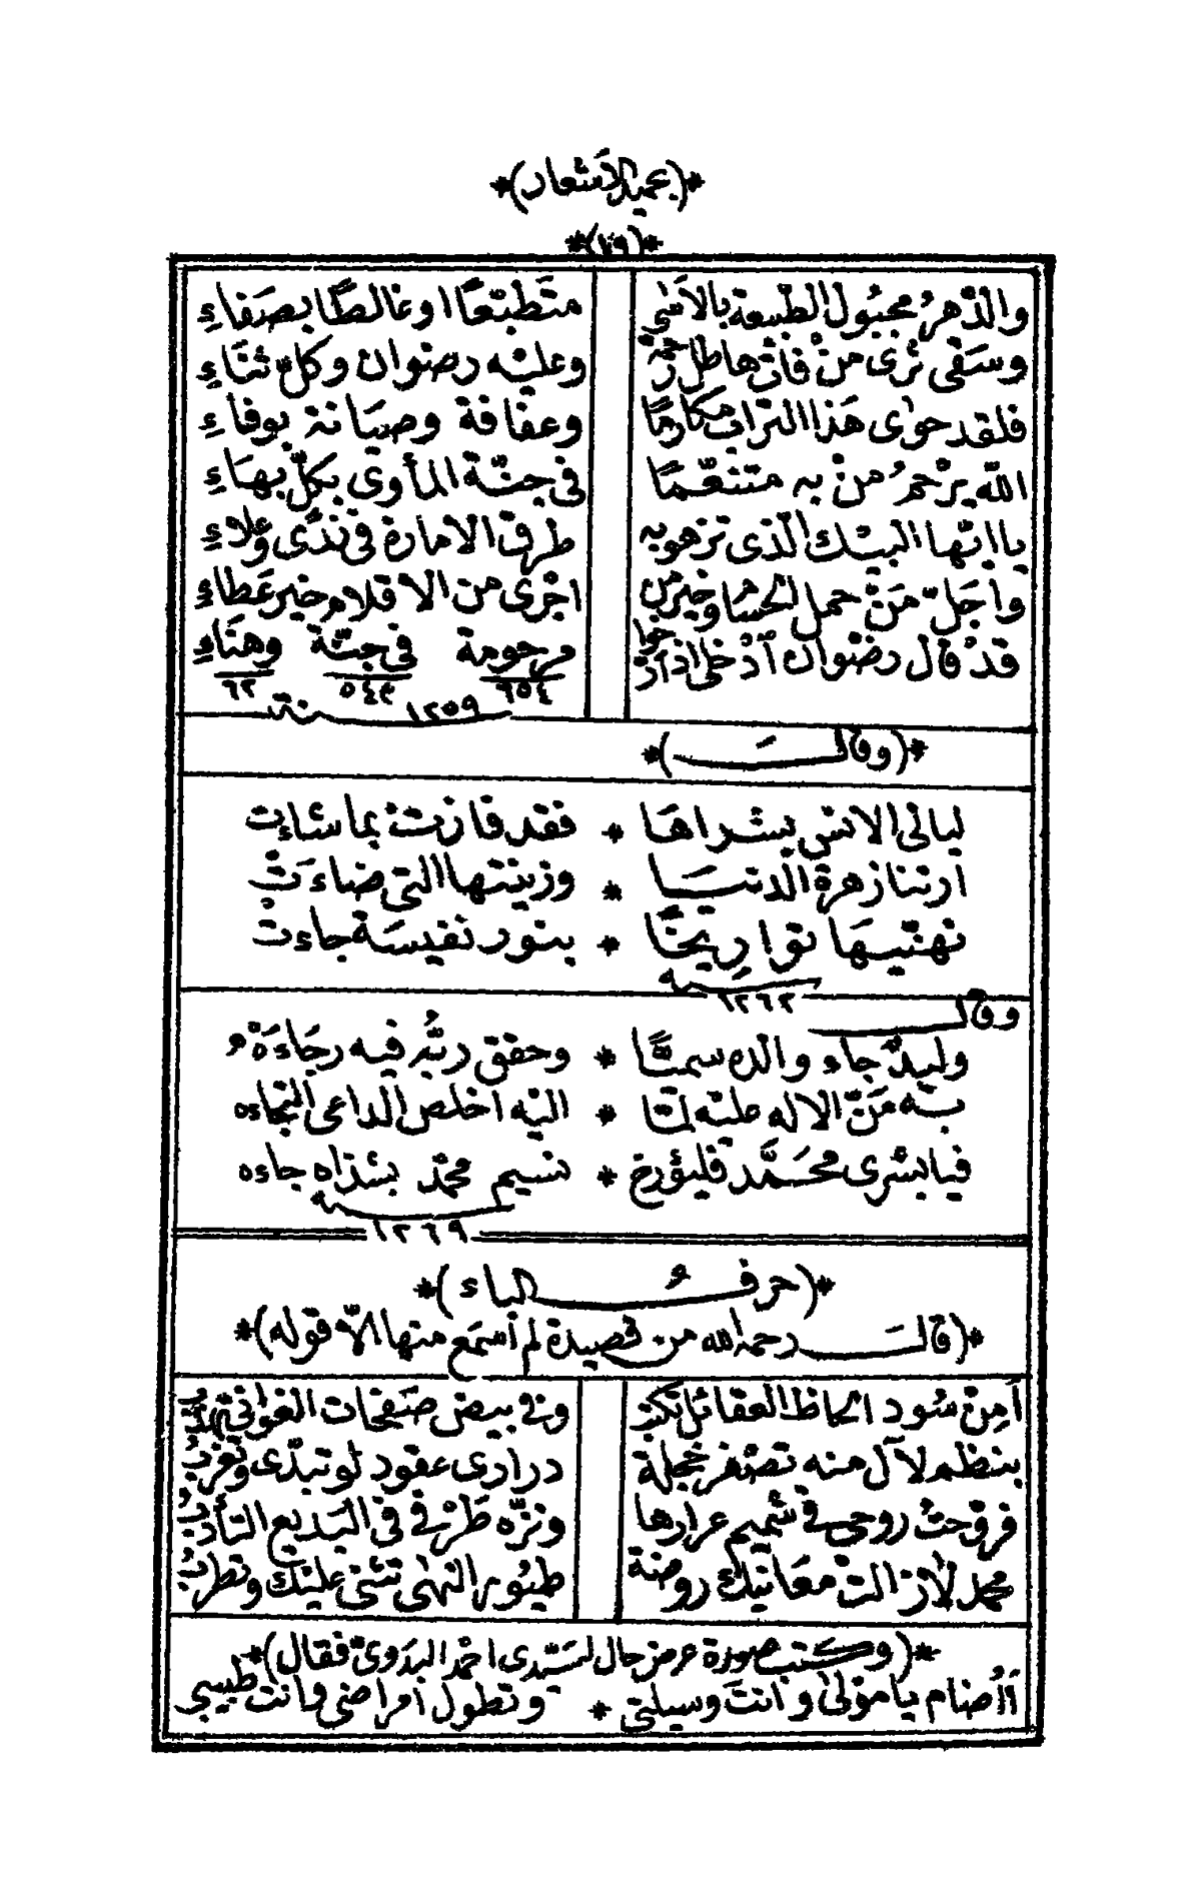 *(بحميد الأشعار)*
*(١٩)*
والدّهرُ مجبُول الطّبيعة بالأسَى متَطبّعًا اوغالطًا بصَفاءِ
وسَقى ثرى منْ فاتْ هاطل رحمَة وعليْه رضوان وكلّ ثنَاءِ
فلقد حوَى هَذا التراب مكارمًا وعفافة وصيَانة بوفاءِ
اللّه يرْحمُ منْ به متنعّمًا فى جنّة المأوى بكلّ بهَاءِ
يا ايّها البيْك الّذى تزهوبه طرق الامارة فى ندًى وَعلاءِ
واجَلّ مَنْ حمل الحُسَام وخيرمن اجْرى من الاقلام خير عَطاءِ
قدْ قال رضْوان اُدْخلى اذ اَرّخوا مرحومة فى جنّة وهنَاءِ
٦٥٤ ٥٤٣ ٦٢
سنة ١٢٥٩
*(وقالَ)*
ليالى الانس بشراهَا * فقد فازتْ بما شاءت
أرتنا زهرة الدنيَا * وزينتها التى ضاءَتْ
تهنّيهَا تواريخًا * بنور نفيسَة جاءت
سنة ١٢٦٢
وقال
وليدٌ جاء والده سميًّا * وحقق ربُّه فيه رجَاءَهْ
بهِ مَنّ الاله عليْه لمّا * اليْه اخلص الداعى التجاءه
فيا بشرى محَمَّد فليؤرخ * نسيم محمّد بشذاه جاءه
سنة ١٢٦٩
*(حرفُ الباء)*
*(قالَ رحمه الله من قصيدة لم أسمَع منها الاّ قوله)*
أمِنْ سُود الحاظ العقائل تكتبُ وفى بيض صَفحَات الغوانى تهذّبُ
بنظم لآل منه تصْفر خجلة درارى عقود لوتبدّى وتغربُ
فروّحتُ روحى فى شميم عرارها ونزّه طَرْفى فى البَديع التأدّبُ
محمد لازالتْ معَانيْك روضة طيُور النهى تثنى عليْك وتطربُ
*(وكتب صورة عرض حال لسَيّدى احْمد البدَوىّ فقال)*
أَأُضام يا موْلىَ وانتَ وسيلتى * وتطول أمراضى وانت طبيبى